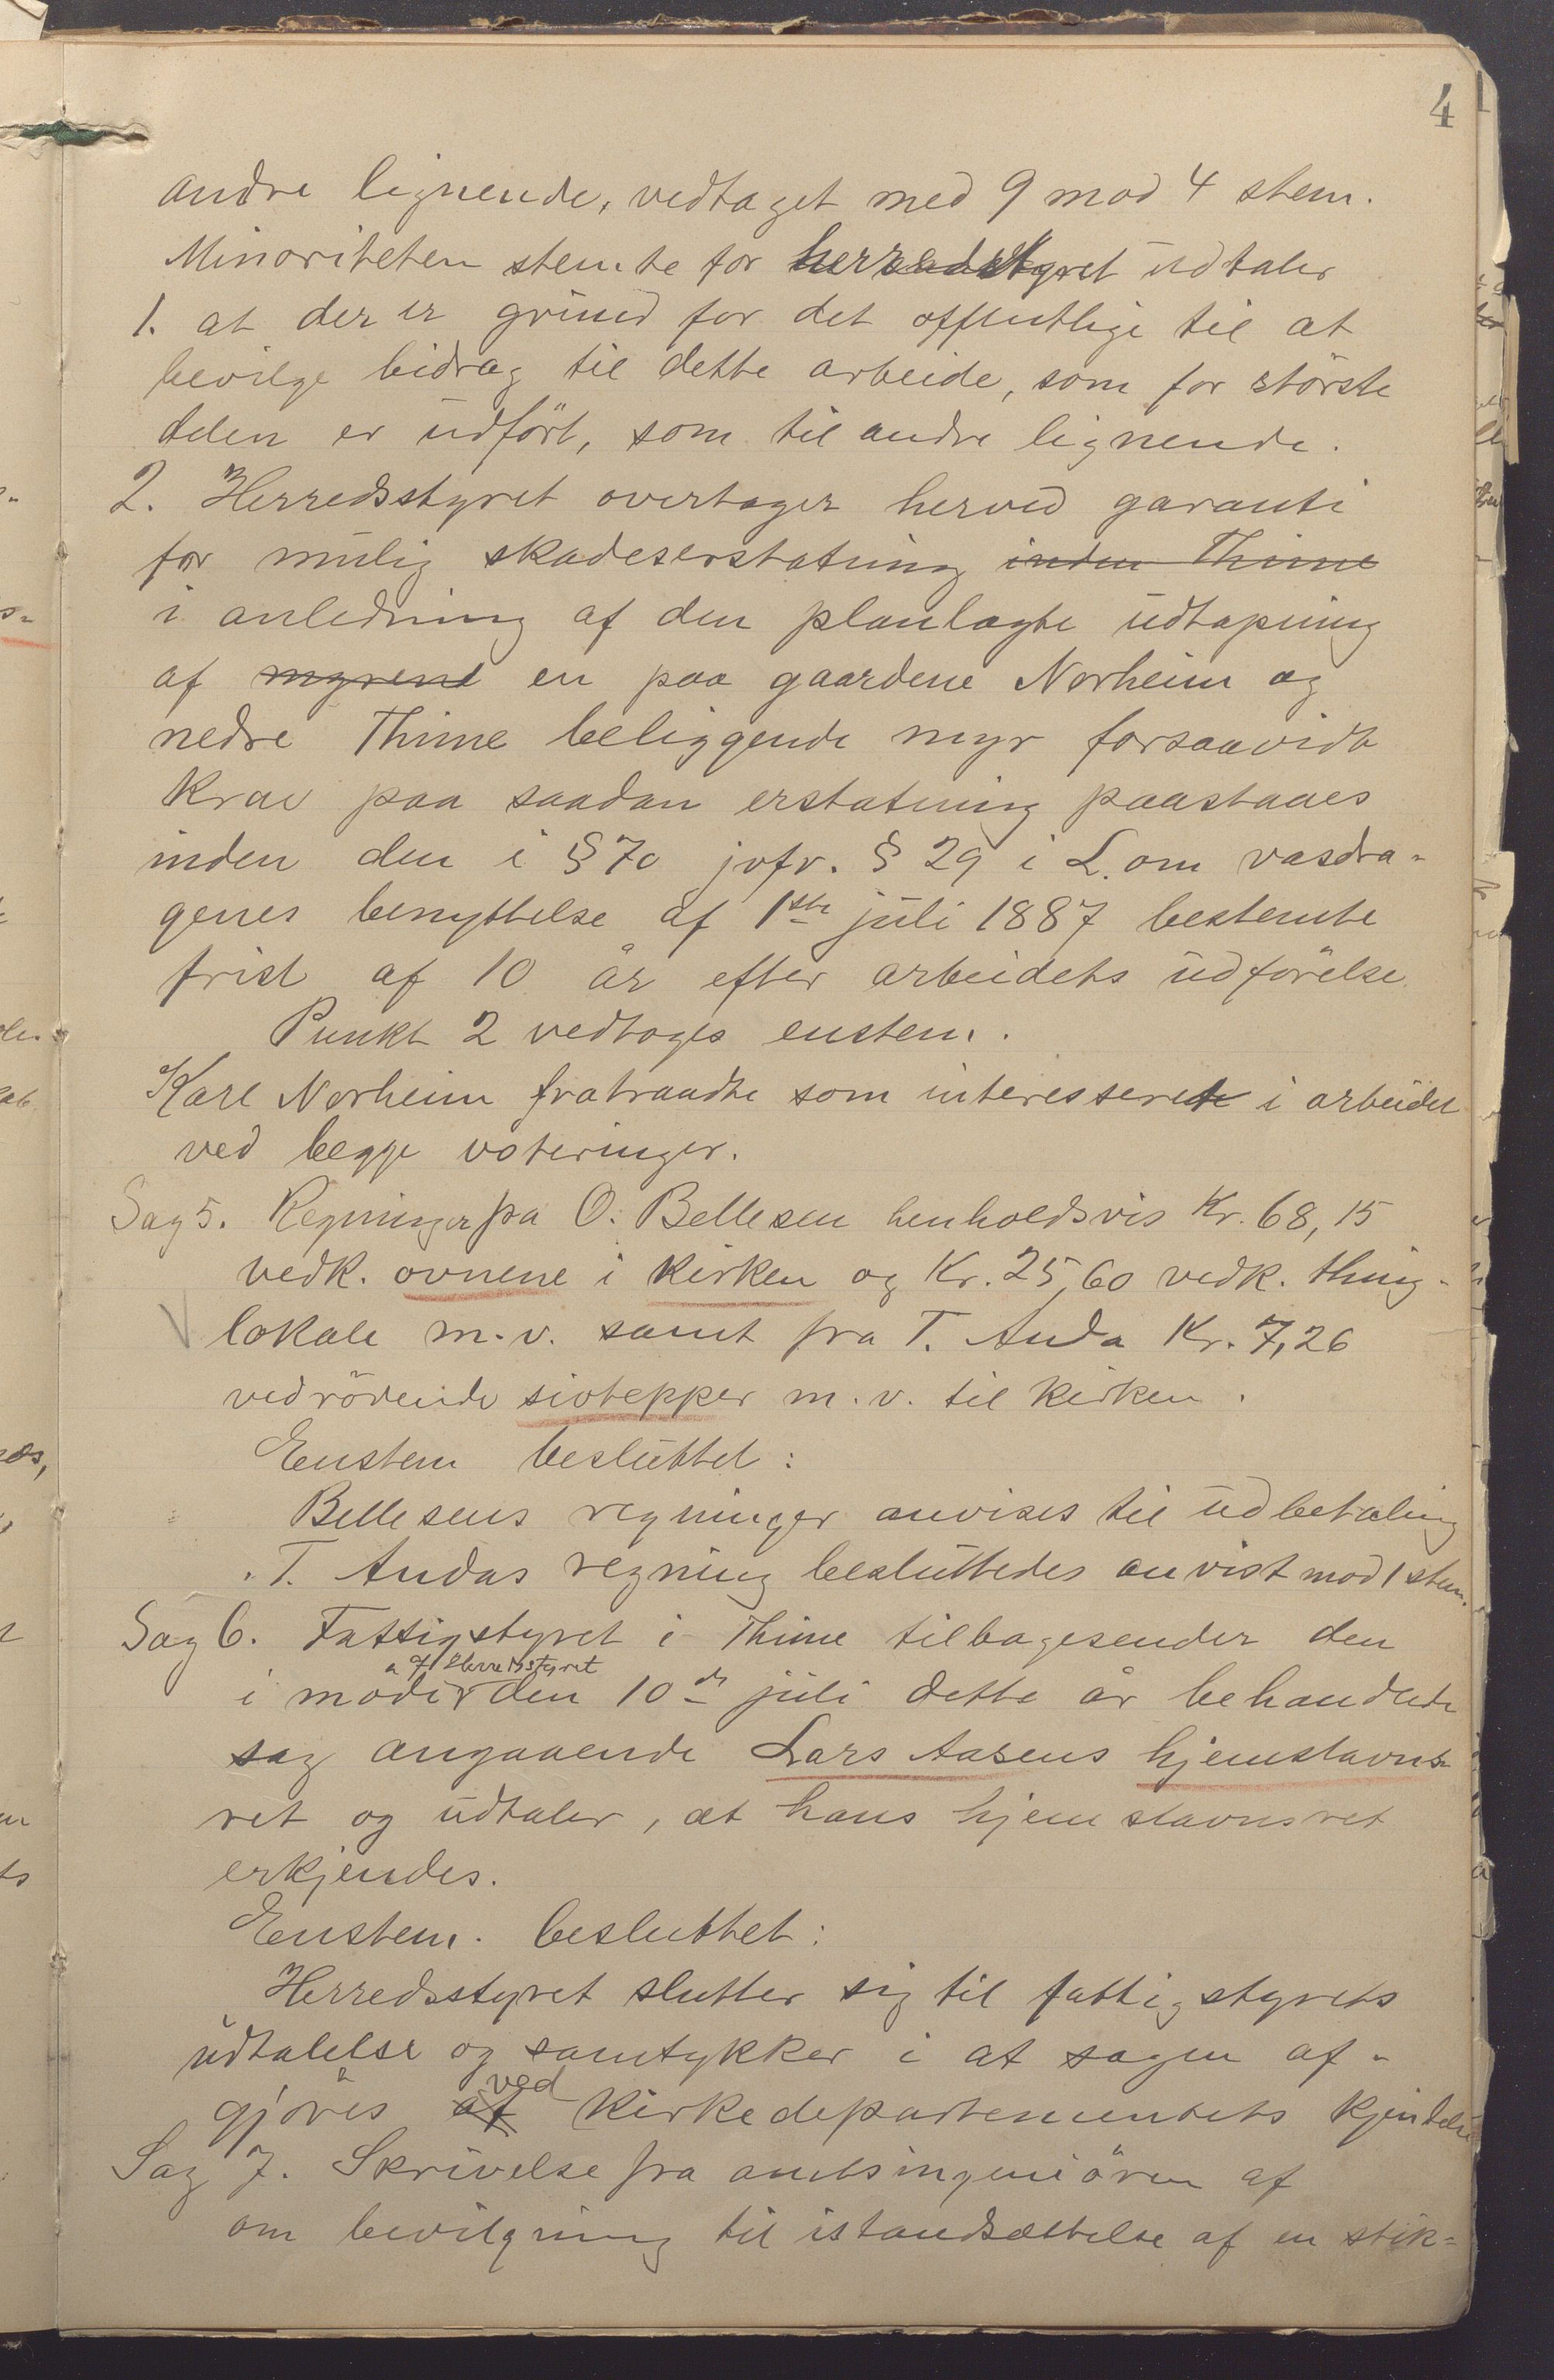 4
andre lignende, vedtaget med 9 mod 4 stem.
Minoriteten stemte for herredstyret udtaler
1. at der er grund for det offentlige til at
bevilge bidrag til dette arbeide, som for störste
delen er udfört, som til andre lignende.
2. Herredsstyret overtager herved garanti
for mulig skadeserstatning inden Thime
i anledning af den planlagte udtapning
af myrene en paa gaardene Norheim og
nedre Thime beliggende myr forsaavidt
krav paa saadan erstatning paastaaes
inden den i § 70 jvfr. § 29 i L. om vasdra-
genes benyttelse af 1ste juli 1887 bestemte
frist af 10 år efter arbeidets udförelse.
Punkt 2 vedtoges enstem.
Karl Norheim fratraadte som interesseret i arbeidet
ved begge voteringer.
Sag 5. Regninger fra O. Bellesen henholdsvis Kr. 68,15
vedk. ovnene i kirken og Kr. 25,60 vedk. thing-
lokale m.v. samt fra T. Anda Kr. 7,26
vedrörende sivtepper m.v. til kirken.
Enstem besluttet:
Bellesens regninger anvises til udbetaling
T. Andas regning besluttedes anvist mod 1 stem.
Sag 6. Fattigstyret i Thime tilbagesender den
af Herredsstyret
i möde den 10de juli dette år behandlede
sag angaaende Lars Aasens hjemstavns-
ret og udtaler, at hans hjemstavnsret
erkjendes.
Enstem. besluttet:
Herredsstyret slutter sig til fattigstyrets
udtalelse og samtykker i at sagen af-
gjöres af ved Kirkedepartementets kjendelse
Sag 7. Skrivelse fra amtsingeniören af
om bevilgning til istandsættelse af en stik-